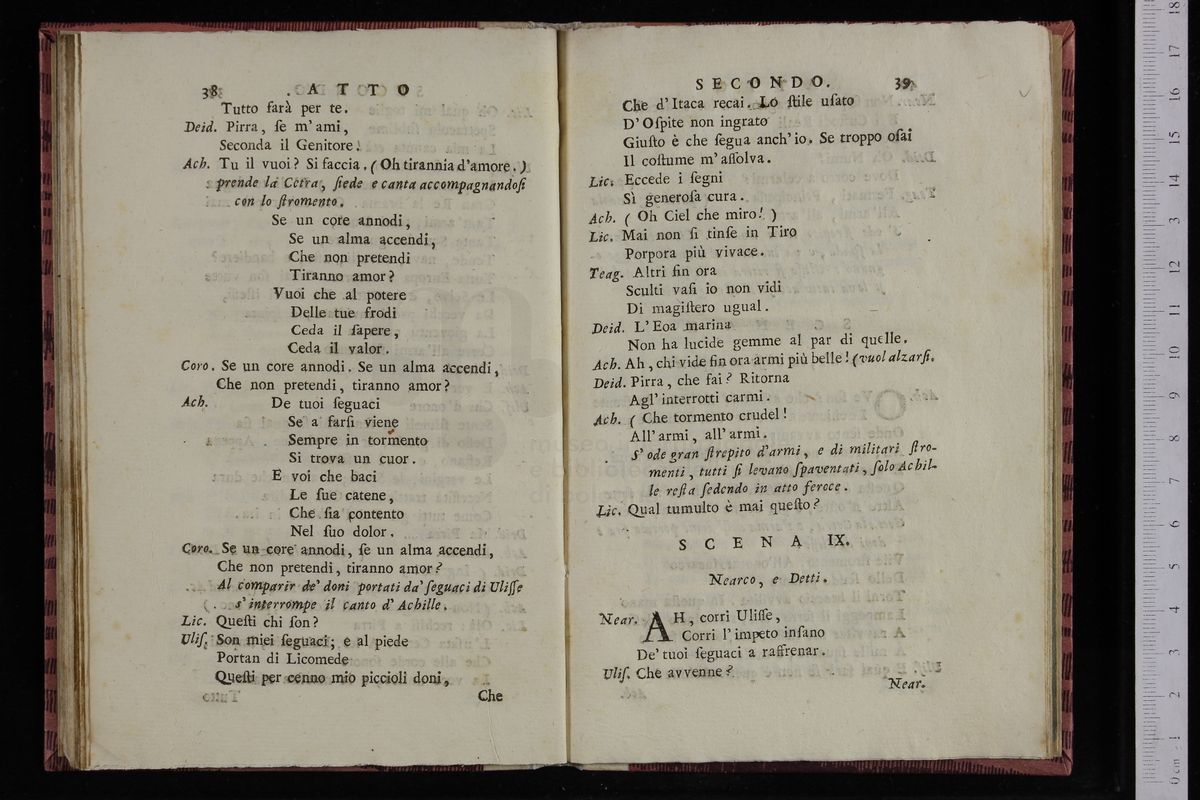 38 . A T T O
Tutto farà per te.
Deid. Pirra, ſe m' ami,
Seconda il Genitore.
Ach. Tu il vuoi? Si faccia. (Oh tirannia d'amore.)
prende la Cetra, ſiede e canta accompagnandoſi
con lo ſtromento.
Se un core annodi,
Se un alma accendi,
Che non pretendi
Tiranno amor?
Vuoi che al potere
Delle tue frodi
Ceda il ſapere,
Ceda il valor.
Coro. Se un core annodi. Se un alma accendi,
Che non pretendi, tiranno amor?
Ach. De tuoi ſeguaci
Se a farſi viene
Sempre in tormento
Si trova un cuor.
E voi che baci
Le ſue catene,
Che ſia contento
Nel ſuo dolor.
Coro. Se un core annodi, ſe un alma accendi,
Che non pretendi, tiranno amor?
Al comparir de' doni portati da' ſeguaci di Uliſſe
s' interrompe il canto d' Achille.
Lic. Queſti chi ſon?
Uliſ. Son miei ſeguaci; e al piede
Portan di Licomede
Queſti per cenno mio piccioli doni,
Che
SECONDO. 39
Che d' Itaca recai. Lo ſtile uſato
D' Oſpite non ingrato
Giuſto è che ſegua anch' io. Se troppo oſai
Il coſtume m' aſſolva.
Lic. Eccede i ſegni
Sì generoſa cura.
Ach. ( Oh Ciel che miro! )
Lic. Mai non ſi tinſe in Tiro
Porpora più vivace.
Teag. Altri fin ora
Sculti vaſi io non vidi
Di magiſtero ugual.
Deid. L' Eoa marina
Non ha lucide gemme al par di quelle.
Ach. Ah, chi vide fin ora armi più belle! (vuol alzarſi.
Deid. Pirra, che fai? Ritorna
Agl' interrotti carmi.
Ach. ( Che tormento crudel!
All' armi, all' armi.
S' ode gran ſtrepito d'armi, e di militari ſtro-
menti, tutti ſi levano ſpaventati, ſolo Achil-
le reſta ſedendo in atto feroce.
Lic. Qual tumulto è mai queſto?
S C E N A IX.
Nearco, e Detti.
Near. AH, corri Uliſſe,
Corri l' impeto inſano
De' tuoi ſeguaci a raffrenar.
Uliſ. Che avvenne?
Near.